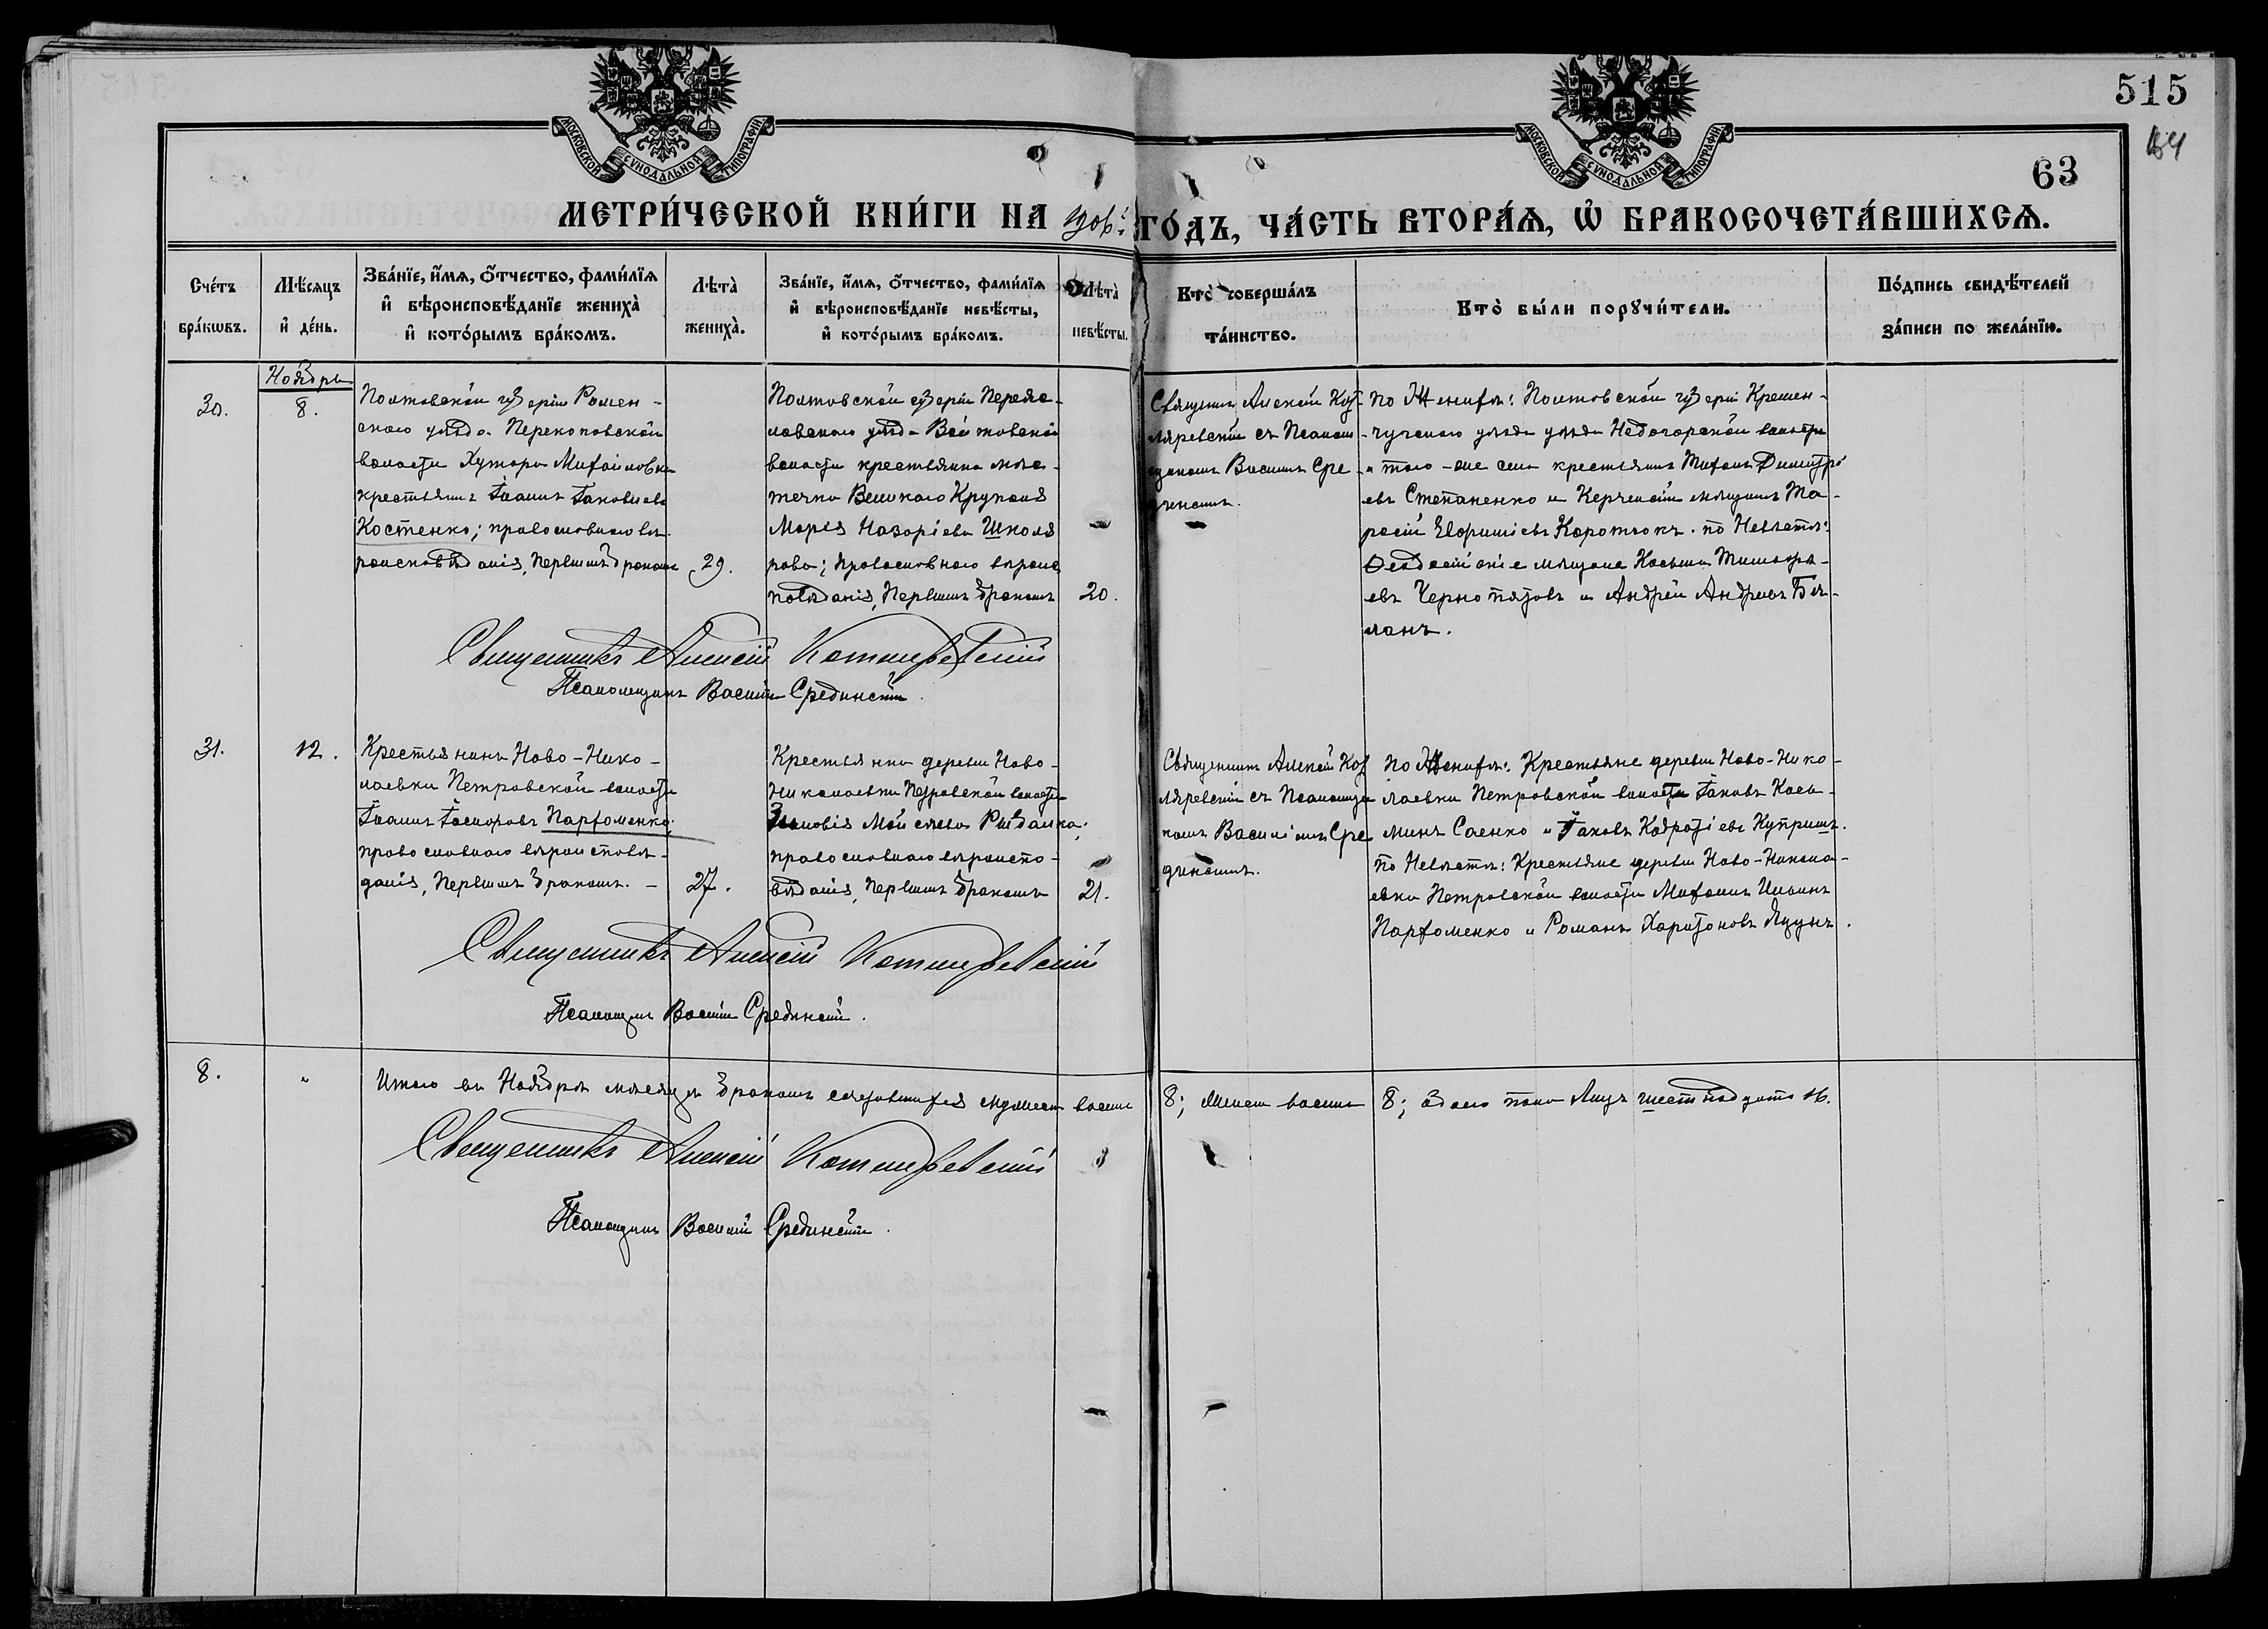 515
64
63
МОСКОВСКОЙ СУНОДАЛЬНОЙ ТИПОГРАФІИ
МОСКОВСКОЙ СУНОДАЛЬНОЙ ТИПОГРАФІИ
МЕТРИ́ЧЕСКОЙ КНИ́ГИ НА 1906 ГО́ДЪ, ЧА́СТЬ ВТОРА́Я, Ѡ БРАКОСОЧЕТА́ВШИХСЯ.
Сче́тъ
бра́кѡвъ.
Мѣ́сяцъ
и҆ де́нь.
Зва́нїе, и҆́мя, ѻ҆́тчество, фами́лїя
и҆ вѣроисповѣ́данїе жениха̀
и҆ кото́рымъ бра́комъ.
Лѣта̀
жениха̀.
Зва́нїе, и҆́мя, ѻ҆́тчество, фами́лїя
и҆ вѣроисповѣ́данїе невѣ́сты,
и҆ кото́рымъ бра́комъ.
Лѣта̀
невѣ́сты.
Кто̀ соверша́лъ
та́инство.
Кто̀ бы́ли порꙋчи́тели.
По́дпись свидѣ́телей
за́писи по жела́нїю.
Ноябрь
30.
8.
Полтавской губерніи Ромен-
скаго уѣзда Перекоповской
волости Хутора Михайловки
крестьянинъ Іоаннъ Іаковлевъ
Костенко; православнаго вѣ-
роисповѣданія, первымъ бракомъ
29.
Полтавской губерніи Переяс-
лавскаго уѣзда Войтовской
волости крестьянка мѣс-
течка Великаго Круполя
Марія Назаріева Школя
рова; православнаго вѣроис
повѣданія, первымъ бракомъ
20.
Священникъ Алексѣй Кот
ляревскій съ Псаломщ
икомъ Василіемъ Сре
динскимъ.
По Женихѣ: Полтавской губерніи Кремен-
чугскаго уѣзда уѣзда Недогарской волости
и того-же села крестьянинъ Тихонъ Димитрі
евъ Степаненко и Керченскій мѣщанинъ Та-
расій Ефиміевъ Коротюкъ. По Невѣстѣ:
Ѳеодосійскіе мѣщане Косьма Тимоѳе-
евъ Чернопятовъ и Андрей Андреевъ Бѣ-
ланъ.
Священникъ Алексій Котляревскій
Псаломщикъ Василій Срединскій.
31.
12.
Крестьянинъ Ново-Нико-
лаевки Петровской волости
Іоаннъ Іосифовъ Парфоменко;
православнаго вѣроисповѣ-
данія, первымъ бракомъ. -
27.
Крестьянка деревни Ново-
Николаевки Петровской волости
Зиновія Моѵсеева Рибалка;
православнаго вѣроиспо-
вѣданія, первымъ бракомъ
21.
Священникъ Алексѣй Кот
ляревскій съ Псаломщи
комъ Василіемъ Сре
динскимъ.
По Женихѣ: Крестьяне деревни Ново-Нико-
лаевки Петровской волости Іаковъ Кось-
минъ Саенко и Іаковъ Кодратіевъ Купришъ.
По Невѣстѣ: Крестьяне деревни Ново-Никола-
евки Петровской волости Михаилъ Ильинъ
Парфоменко и Романъ Харитоновъ Яцунъ.
Священникъ Алексій Котляревскій
Псаломщикъ Василій Срединскій.
8.
"
Итого въ Ноябрѣ мѣсяцѣ бракомъ сочетавшихся мужеск восемь 8; женск восемь 8; обоего пола лицъ шестнадцать 16.
Священникъ Алексій Котляревскій
Псаломщикъ Василій Срединскій.